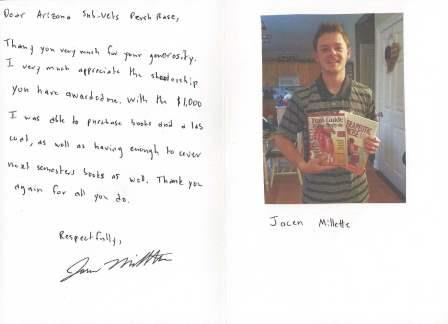 Dear Arizona Sub-Vets Perch Base,
Thank you very much for your generosity.
I very much appreciate the scholorship
you have awarded me. With the $1,000
I was able to purchase books and a lab
coat, as well as having enough to cover
next semesters books as well. Thank you
again for all you do.
Respectfully,
Jacen Millette